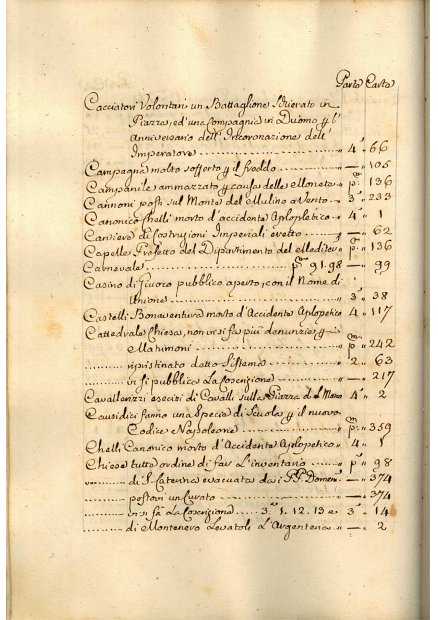 Parte Carta
Cacciatori Volontari un Battaglione Schierato in
Piazza, ed' una Compagnia in Duomo p l'
anniversario dell' Incoronazione dell'
Imperatore " 4° " 66
Campagna molto sofferto p il freddo " — " 105
Campanile ammazzato p causa delle Monete " pma " 136
Cannoni posti sul Monte del Mulino a Vento " 3° " 233
Canonico Chelli morto d'accidente Aploplettico " 4° " 1
Cantiere di Costruzioni Imperiali eretto " — " 62
Capelle Prefetto del Dipartimento del Mediter " pma " 136
Carnevale pma 91. 98 — " 99
Casino di Giuoco pubblico aperto, con il Nome di
Unione " 3° " 38
Castelli Bonaventura morto d'Accidente Aplopetico " 4° " 117
Cattedrale Chiesa, non vi si fa più denunzie p
Matrimoni " pma " 242
ripristinato detto Sistema " 2° " 63
in si pubblico La Coscrizione " — " 217
Cavallerizzi esercizi di Cavalli sulla Piazza d'
Causidici fanno una Specie di Scuola p il nuovo
Codice Napoleone " pma " 359
Chelli Canonico morto d'Accidente Aplopetico " 4° " 1
Chiese tutte ordine di far L'inventario " pma " 98
di S. Caterina evacuata dai PP. Domeni " — " 374
postoni un Curato " — " 374
in si fà La Coscrizione 3° 1. 12. 13 e 3° " 14
di Montenero Levatoli L'Argenteria " — " 2